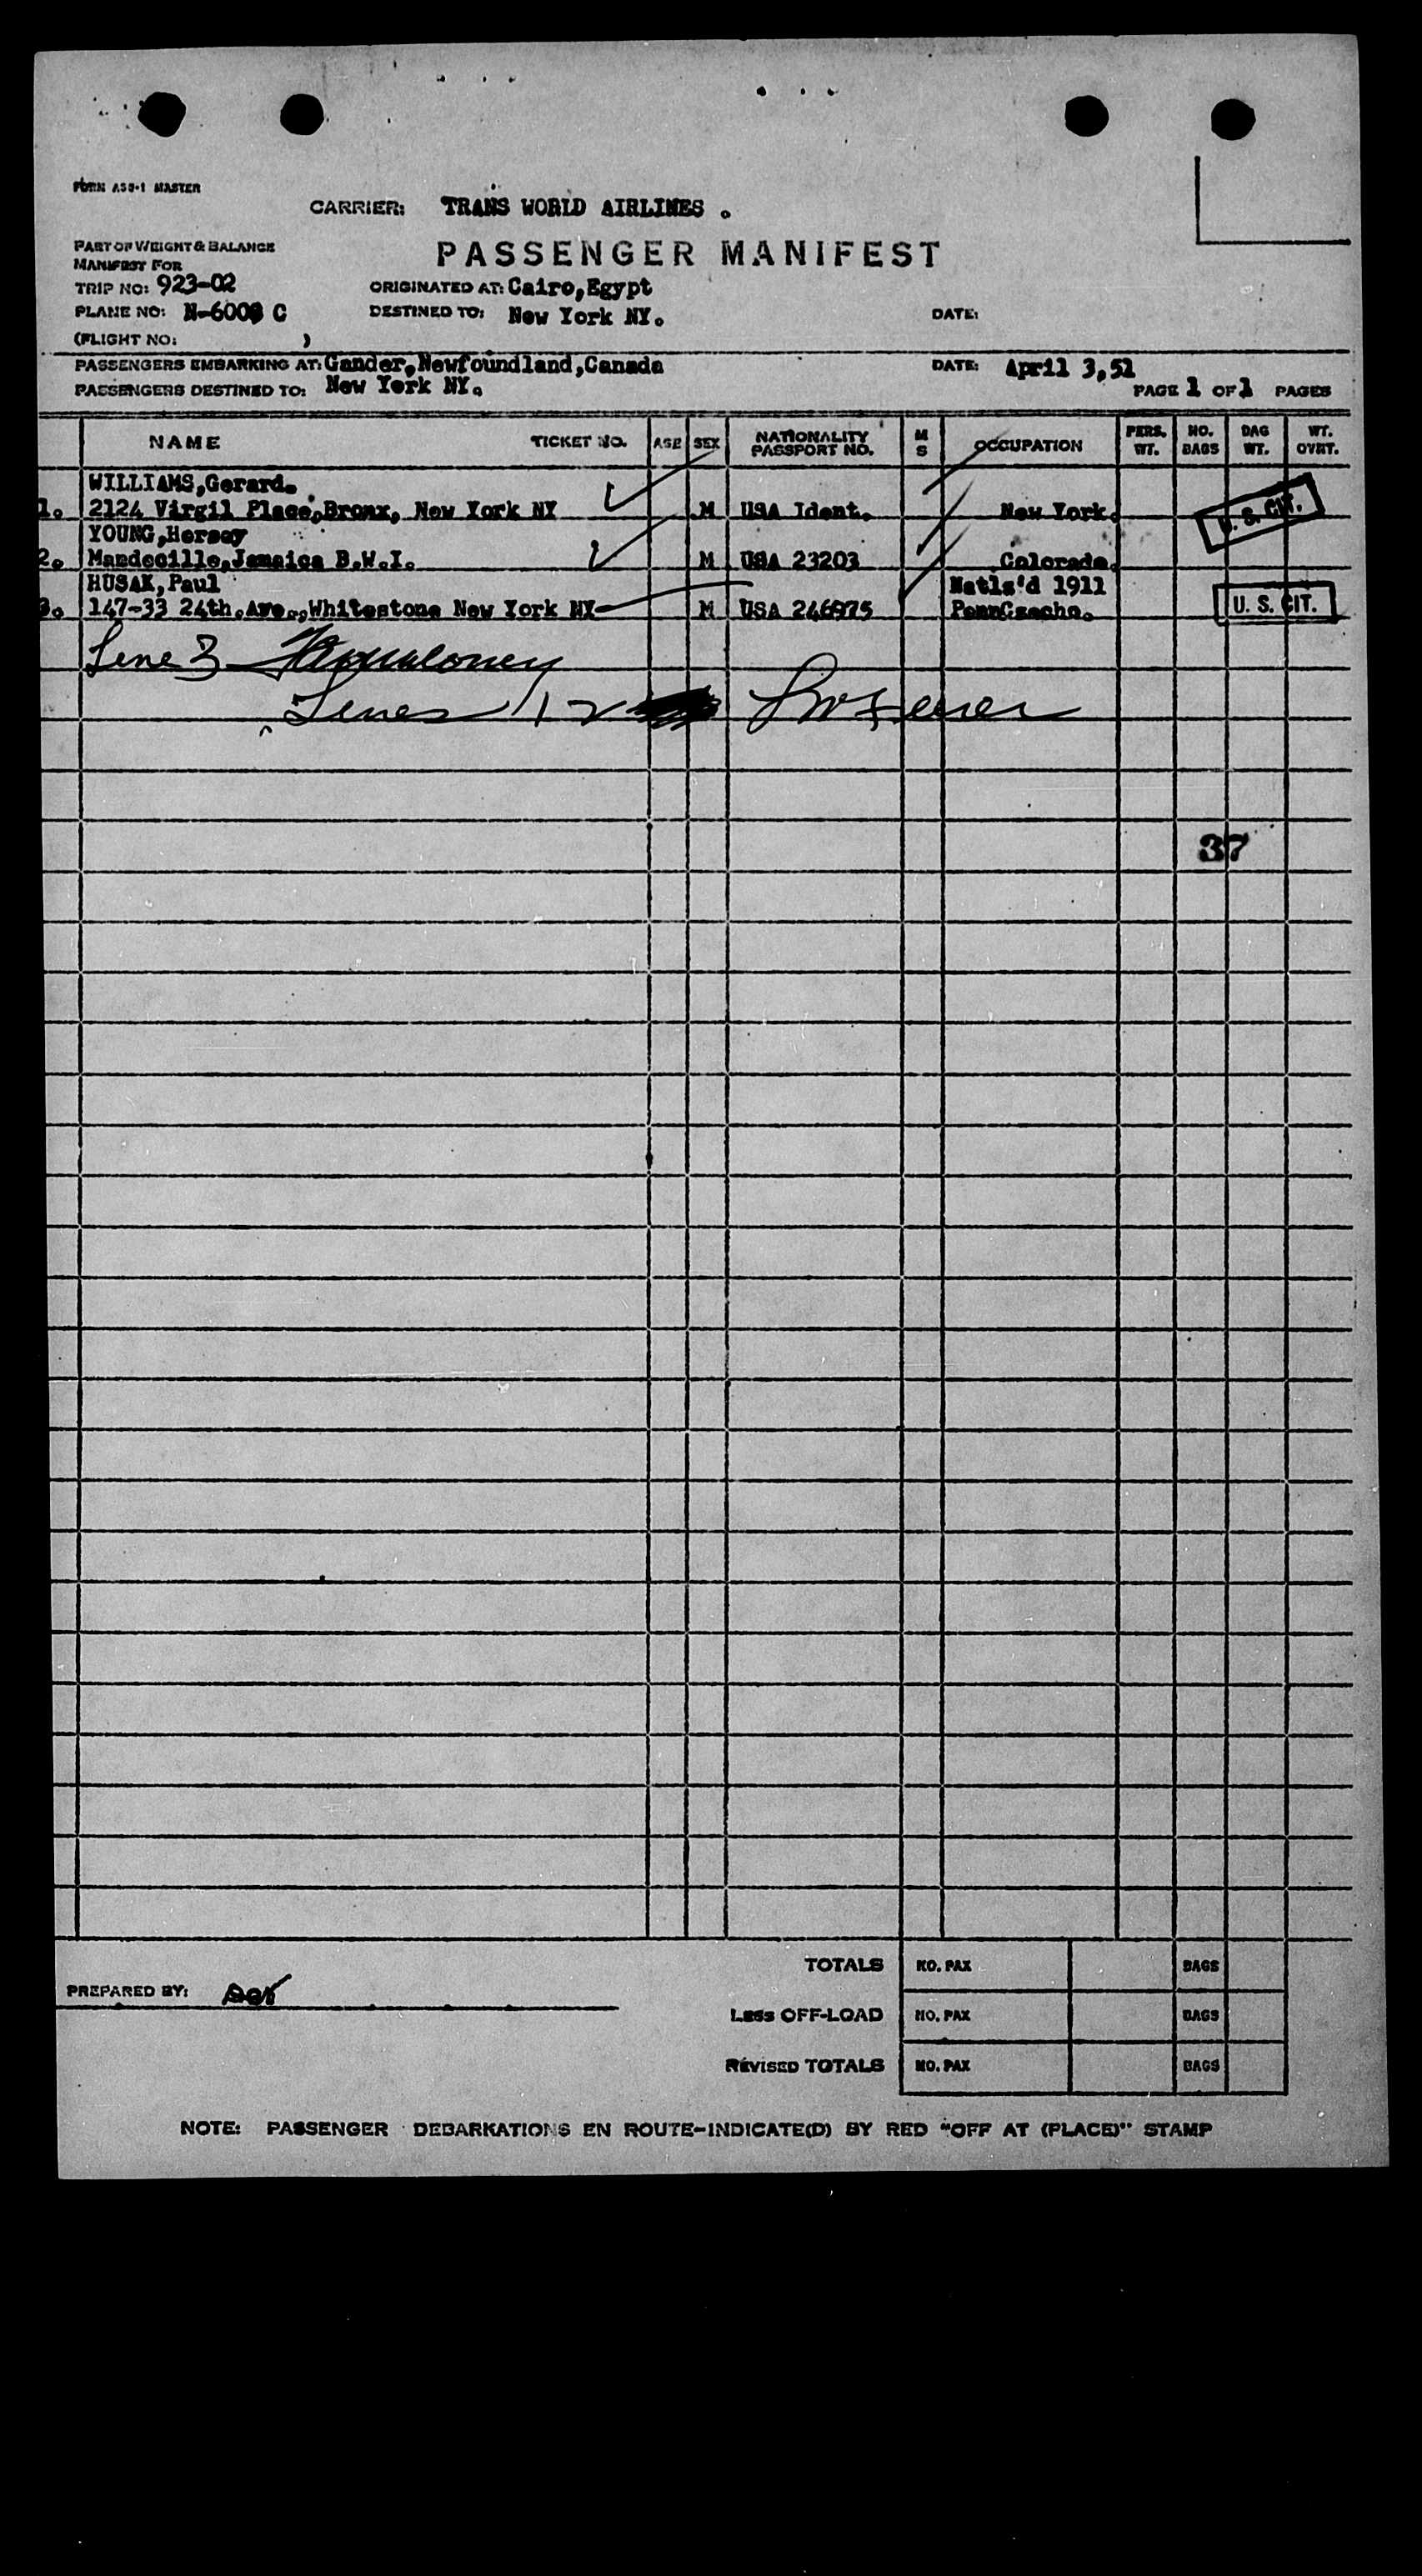 FORM A33-1 MASTER
CARRIER: TRANS WORLD AIRLINES .
PASSENGER MANIFEST
PART OF WEIGHT & BALANCE
MANIFEST FOR
TRIP NO: 923-02 ORIGINATED AT: Cairo,Egypt
PLANE NO: N-6008 C DESTINED TO: New York NY. DATE:
(FLIGHT NO: )
PASSENGERS EMBARKING AT: Gander,Newfoundland,Canada DATE: April 3,51
PASSENGERS DESTINED TO: New York NY. PAGE 1 OF 1 PAGES
NAME TICKET NO. AGE SEX NATIONALITY PASSPORT NO. M S OCCUPATION PERS. WT. NO. BAGS BAG WT. WT. OVRT.
WILLIAMS,Gerard.
1. 2124 Virgil Place,Bronx, New York NY M USA Ident. New York. U. S. CIT.
YOUNG,Hersey
2. Mandeville,Jamaica B.W.I. M USA 23203 Colorado.
HUSAK,Paul Natls'd 1911
3. 147-33 24th.Ave.,Whitestone New York NY M USA 246975 PennCzecho. U. S. CIT.
Line 3
Lines 1 2
37
TOTALS NO. PAX BAGS
PREPARED BY:
Less OFF-LOAD NO. PAX BAGS
REVISED TOTALS NO. PAX BAGS
NOTE: PASSENGER DEBARKATIONS EN ROUTE-INDICATE(D) BY RED "OFF AT (PLACE)" STAMP